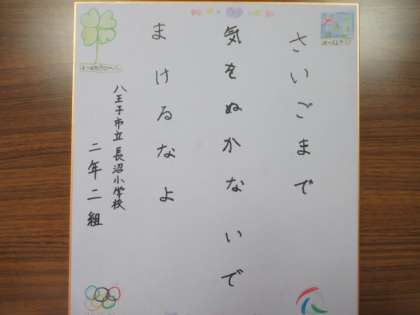 さいごまで
気をぬかないで
まけるなよ
八王子市立長沼小学校
二年二組